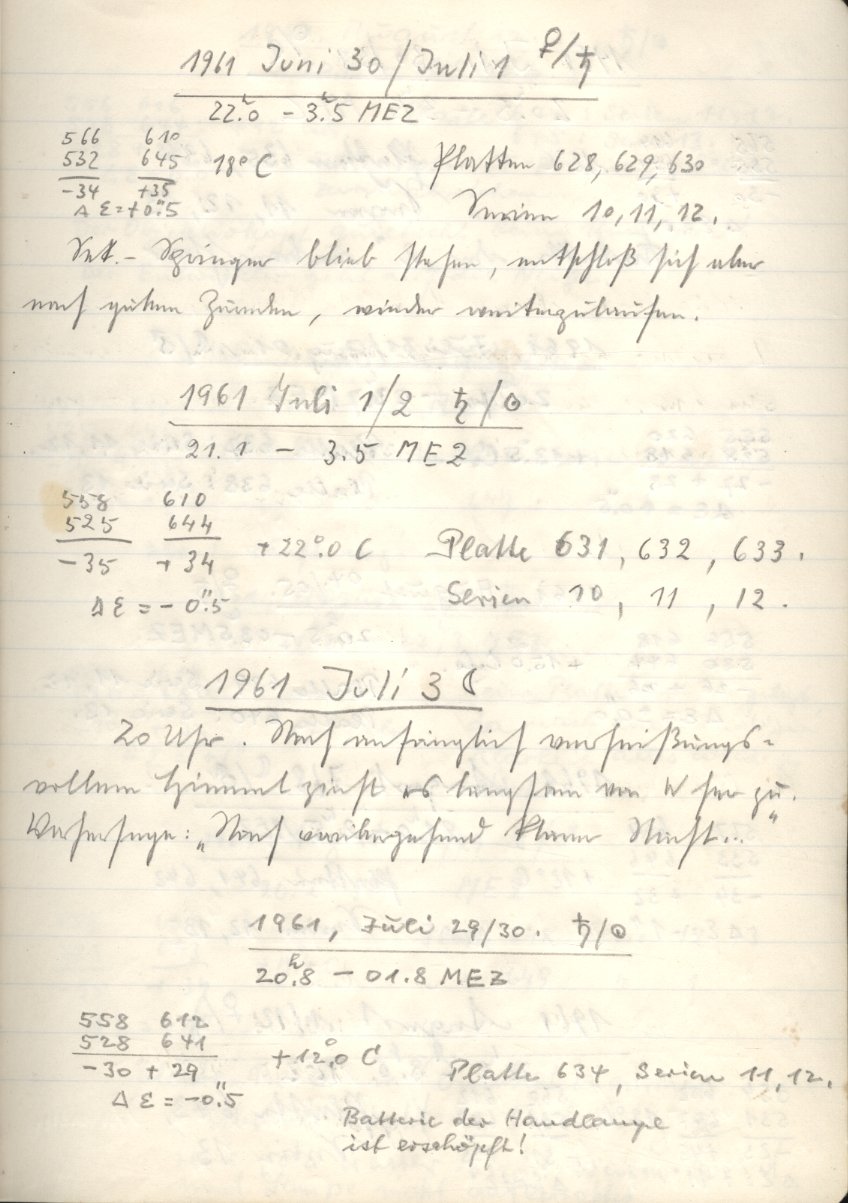 1961 Juni 30/Juli 1 ♀/♄
22.ʰ0 – 3.ʰ5 MEZ
566 610
532 645 18° C Platten 628, 629, 630
-34 +35
Δ ε = +0."5 Serien 10, 11, 12.
Sek.-Springer blieb stehen, entschloß sich aber
nach gutem Zureden, wieder weiterzulaufen.
1961 Juli 1/2 ♄/☉
21.1 – 3.5 MEZ
558 610
525 644
-35 +34 +22.°0 C Platte 631, 632, 633.
Δ ε = -0."5 Serien 10, 11, 12.
1961 Juli 3 ☾
20 Uhr. Nach anfänglich verheißungs-
vollem Himmel zieht es langsam von W her zu.
Vorhersage: „Nach vorübergehend klarer Nacht..."
1961, Juli 29/30. ♄/☉
20.ʰ8 – 01.8 MEZ
558 612
528 641
-30 +29 +12.°0 C Platte 634, Serien 11, 12.
Δ ε = -0."5
Batterie der Handlampe
ist erschöpft!